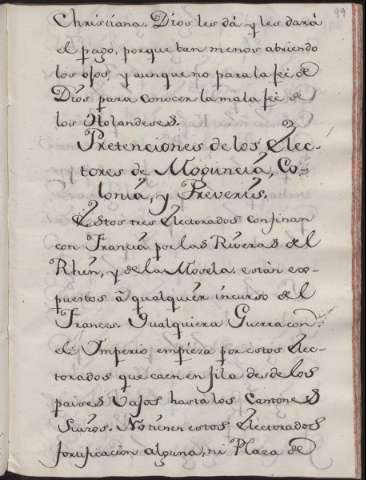 99
Christiana. Dios les dá y les dará
el pago, porque ban menos abriendo
los ojos, y aunque no para la feé de
Dios para conocer la mala feé de
los Holandeses.
Pretenciones de los Elec-
tores de Moguncia, Co-
lonia, y Treveris.
Estos tres Electorados confinan
con Francia por las Riveras del
Rhin, y de la Mosela. están ex-
puestos á qualquier incurso del
Frances. Qualquiera Guerra con
el Imperio empieza por estos Elec-
torados que caen en fila desde los
paises Vajos hasta los Cantones
Suizos. No tienen estos Electorados
fortificacion alguna, ni Plaza de